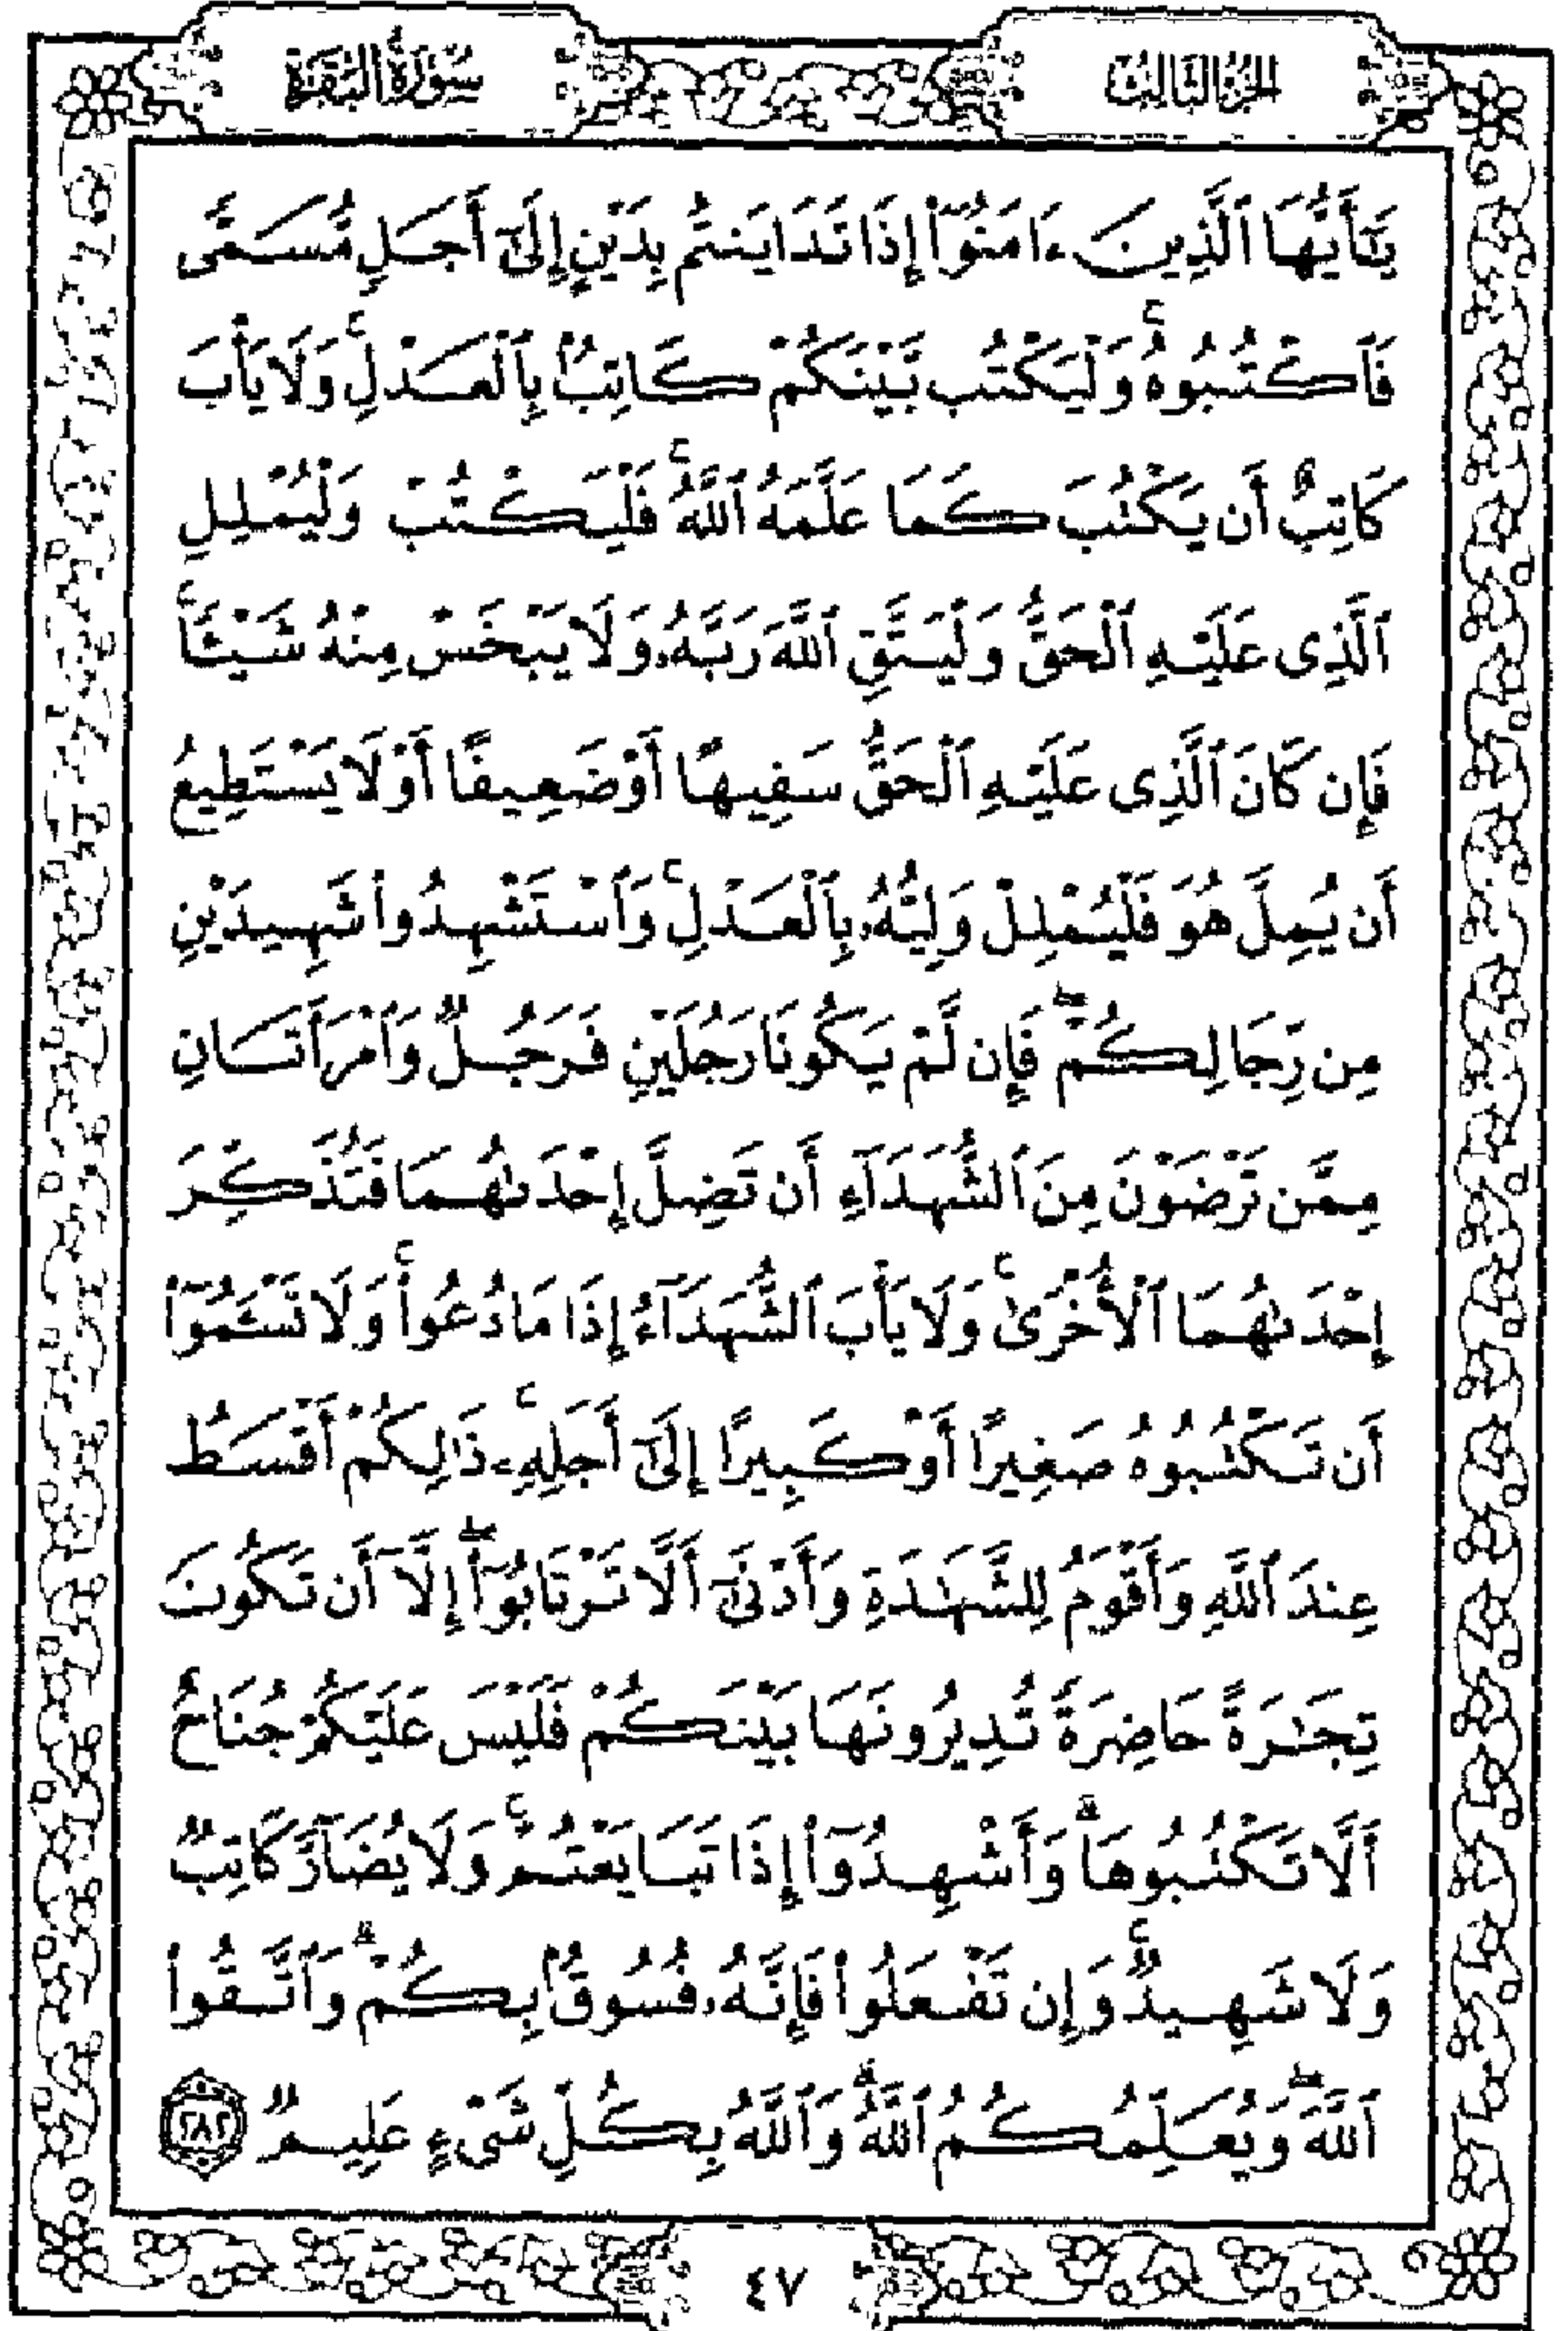 الجزء الثالث
سورة البقرة
يَـٰٓأَيُّهَا ٱلَّذِينَ ءَامَنُوٓا۟ إِذَا تَدَايَنتُم بِدَيْنٍ إِلَىٰٓ أَجَلٍ مُّسَمًّى
فَٱكْتُبُوهُ ۚ وَلْيَكْتُب بَّيْنَكُمْ كَاتِبٌۢ بِٱلْعَدْلِ ۚ وَلَا يَأْبَ
كَاتِبٌ أَن يَكْتُبَ كَمَا عَلَّمَهُ ٱللَّهُ ۚ فَلْيَكْتُبْ وَلْيُمْلِلِ
ٱلَّذِى عَلَيْهِ ٱلْحَقُّ وَلْيَتَّقِ ٱللَّهَ رَبَّهُۥ وَلَا يَبْخَسْ مِنْهُ شَيْـًٔا ۚ
فَإِن كَانَ ٱلَّذِى عَلَيْهِ ٱلْحَقُّ سَفِيهًا أَوْ ضَعِيفًا أَوْ لَا يَسْتَطِيعُ
أَن يُمِلَّ هُوَ فَلْيُمْلِلْ وَلِيُّهُۥ بِٱلْعَدْلِ ۚ وَٱسْتَشْهِدُوا۟ شَهِيدَيْنِ
مِن رِّجَالِكُمْ ۖ فَإِن لَّمْ يَكُونَا رَجُلَيْنِ فَرَجُلٌ وَٱمْرَأَتَانِ
مِمَّن تَرْضَوْنَ مِنَ ٱلشُّهَدَآءِ أَن تَضِلَّ إِحْدَىٰهُمَا فَتُذَكِّرَ
إِحْدَىٰهُمَا ٱلْأُخْرَىٰ ۚ وَلَا يَأْبَ ٱلشُّهَدَآءُ إِذَا مَا دُعُوا۟ ۚ وَلَا تَسْـَٔمُوٓا۟
أَن تَكْتُبُوهُ صَغِيرًا أَوْ كَبِيرًا إِلَىٰٓ أَجَلِهِۦ ۚ ذَٰلِكُمْ أَقْسَطُ
عِندَ ٱللَّهِ وَأَقْوَمُ لِلشَّهَـٰدَةِ وَأَدْنَىٰٓ أَلَّا تَرْتَابُوٓا۟ ۖ إِلَّآ أَن تَكُونَ
تِجَـٰرَةً حَاضِرَةً تُدِيرُونَهَا بَيْنَكُمْ فَلَيْسَ عَلَيْكُمْ جُنَاحٌ
أَلَّا تَكْتُبُوهَا ۗ وَأَشْهِدُوٓا۟ إِذَا تَبَايَعْتُمْ ۚ وَلَا يُضَآرَّ كَاتِبٌ
وَلَا شَهِيدٌ ۚ وَإِن تَفْعَلُوا۟ فَإِنَّهُۥ فُسُوقٌۢ بِكُمْ ۗ وَٱتَّقُوا۟
ٱللَّهَ ۖ وَيُعَلِّمُكُمُ ٱللَّهُ ۗ وَٱللَّهُ بِكُلِّ شَىْءٍ عَلِيمٌ ٢٨٢
٤٧